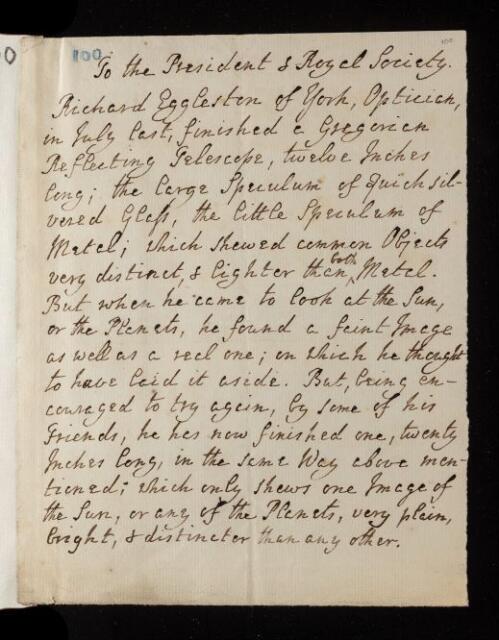 100
100
To the President & Royal Society.
Richard Eggleston of York, Optician,
in July last, finished a Gregorian
Reflecting Telescope, twelve Inches
long; the large Speculum of Quicksil-
vered Glass, the little Speculum of
Metal; which shewed common Objects
both
very distinct, & lighter than Metal.
But when he came to look at the Sun,
or the Planets, he found a faint Image
as well as a real one; on which he thought
to have laid it aside. But, being en-
couraged to try again, by some of his
Friends, he has now finished one, twenty
Inches long, in the same Way above men-
tioned; which only shews one Image of
the Sun, or any of the Planets, very plain,
bright, & distincter than any other.